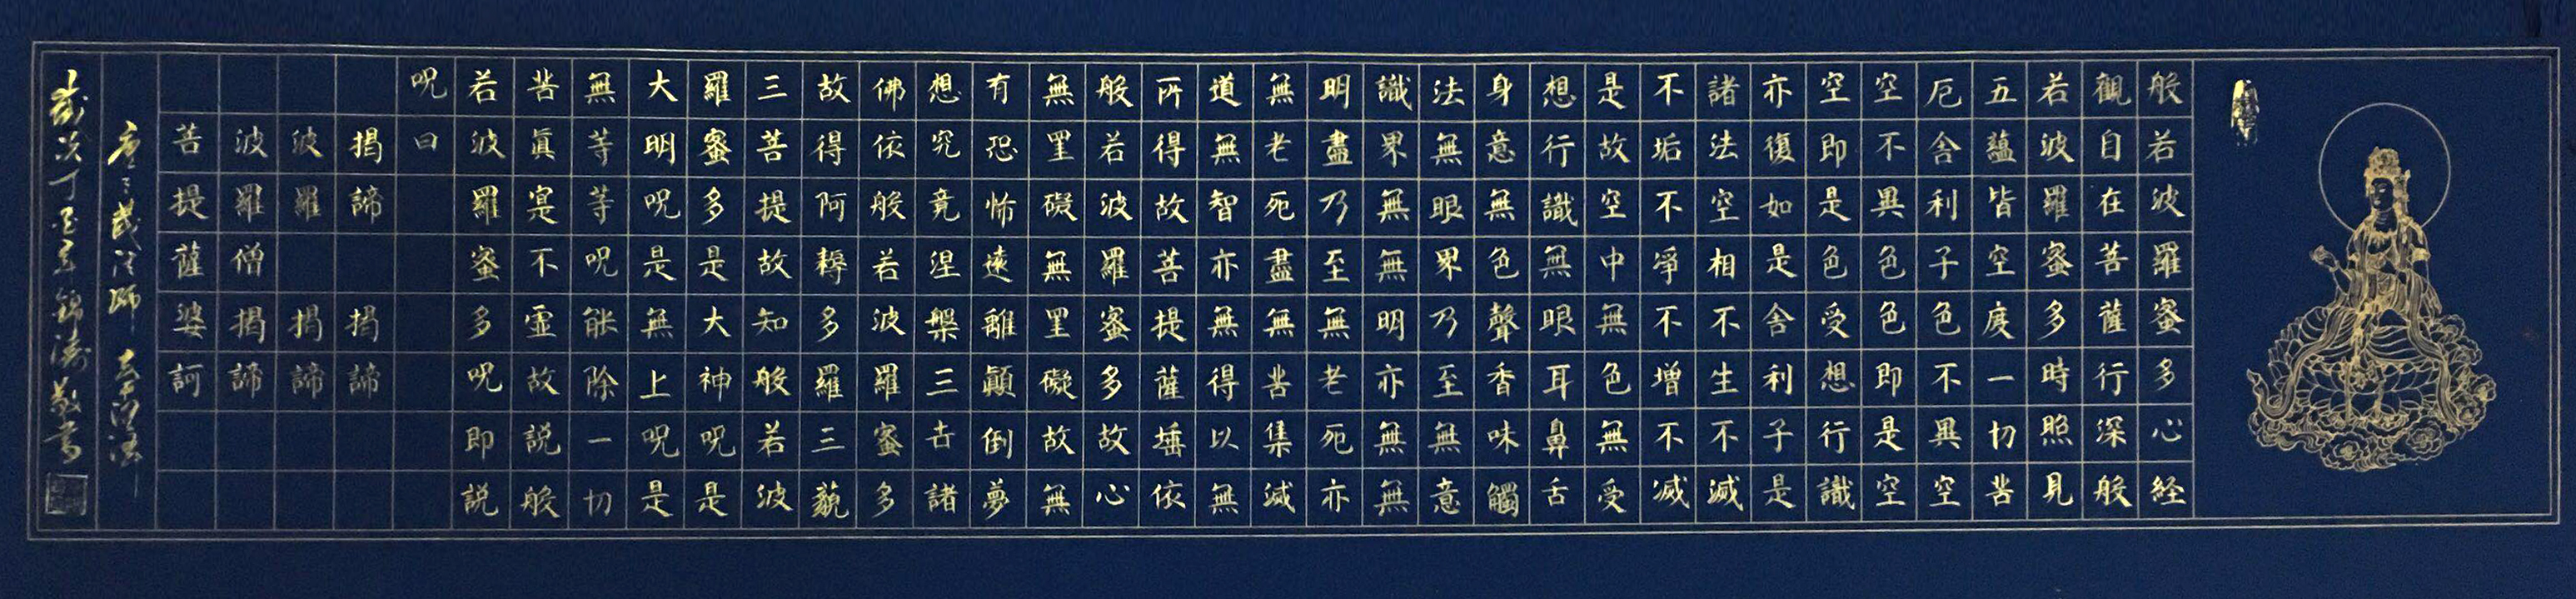 般若波羅蜜多心経
觀自在菩薩行深般
若波羅蜜多時照見
五蘊皆空度一切苦
厄舎利子色不異空
空不異色色即是空
空即是色受想行識
亦復如是舎利子是
諸法空相不生不滅
不垢不淨不增不減
是故空中無色無受
想行識無眼耳鼻舌
身意無色聲香味觸
法無眼界乃至無意
識界無無明亦無無
明盡乃至無老死亦
無老死盡無苦集滅
道無智亦無得以無
所得故菩提薩埵依
般若波羅蜜多故心
無罣礙無罣礙故無
有恐怖遠離顛倒夢
想究竟涅槃三世諸
佛依般若波羅蜜多
故得阿耨多羅三藐
三菩提故知般若波
羅蜜多是大神呪是
大明呪是無上呪是
無等等呪能除一切
苦眞寔不虛故説般
若波羅蜜多呪即説
呪曰
揭諦 揭諦
波羅 揭諦
波羅僧揭諦
菩提薩婆訶
唐三藏法師 玄奘譯
歲次丁酉年錦濤敬書